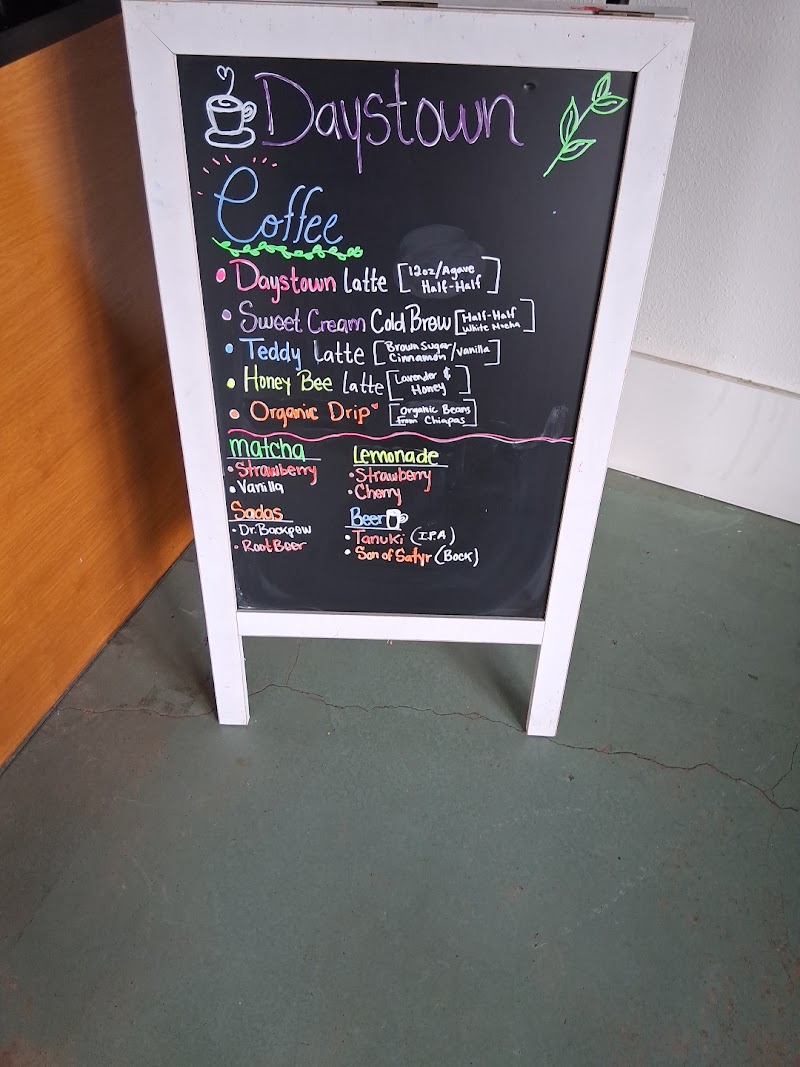 Daystown
Coffee
• Daystown Latte [12oz/Agave
Half-Half]
• Sweet Cream Cold Brew [Half-Half
White Mocha]
• Teddy Latte [Brown Sugar/
Cinnamon/Vanilla]
• Honey Bee Latte [Lavender &
Honey]
• Organic Drip [Organic Beans
from Chiapas]
Matcha
• Strawberry
• Vanilla
Lemonade
• Strawberry
• Cherry
Sodas
• Root Beer
Beer
• Tanuki (I.P.A)
• Son of Satyr (Bock)